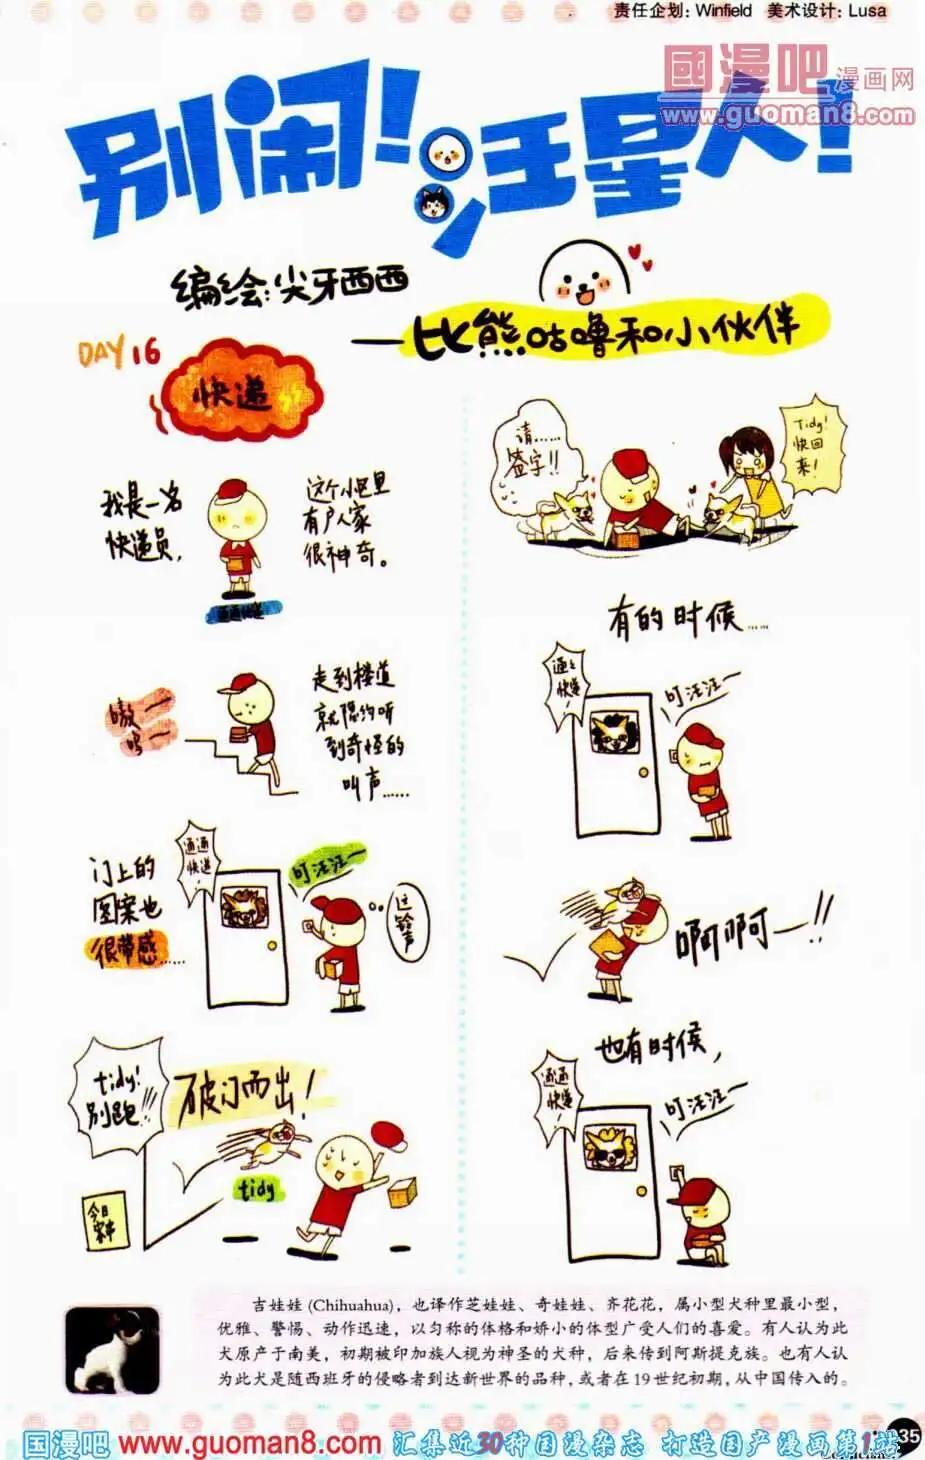 责任企划: Winfield 美术设计: Lusa
國漫吧 漫画网
www.guoman8.com
别闹！汪星人！
编绘:尖牙西西
—比熊咕噜和小伙伴
DAY 16
快递
我是一名
快递员,
这个小区里
有户人家
很神奇。
嗷—
呜~
走到楼道
就隐约听
到奇怪的
叫声……
门上的
图案也
很带感……
通通
快递!
叮汪汪—
这
铃声
tidy!
别跑!!!
破门而出!
tidy
今日
请……
签字!!
Tidy!
快回
来!
有的时候……
通通
快递!
叮汪汪—
啊啊啊—!!
也有时候,
通通
快递!
叮汪汪—
吉娃娃 (Chihuahua)，也译作芝娃娃、奇娃娃、齐花花，属小型犬种里最小型，
优雅、警惕、动作迅速，以匀称的体格和娇小的体型广受人们的喜爱。有人认为此
犬原产于南美，初期被印加族人视为神圣的犬种，后来传到阿斯提克族。也有人认
为此犬是随西班牙的侵略者到达新世界的品种，或者在19世纪初期，从中国传入的。
35
国漫吧 www.guoman8.com 汇集近30种国漫杂志 打造国产漫画第1站